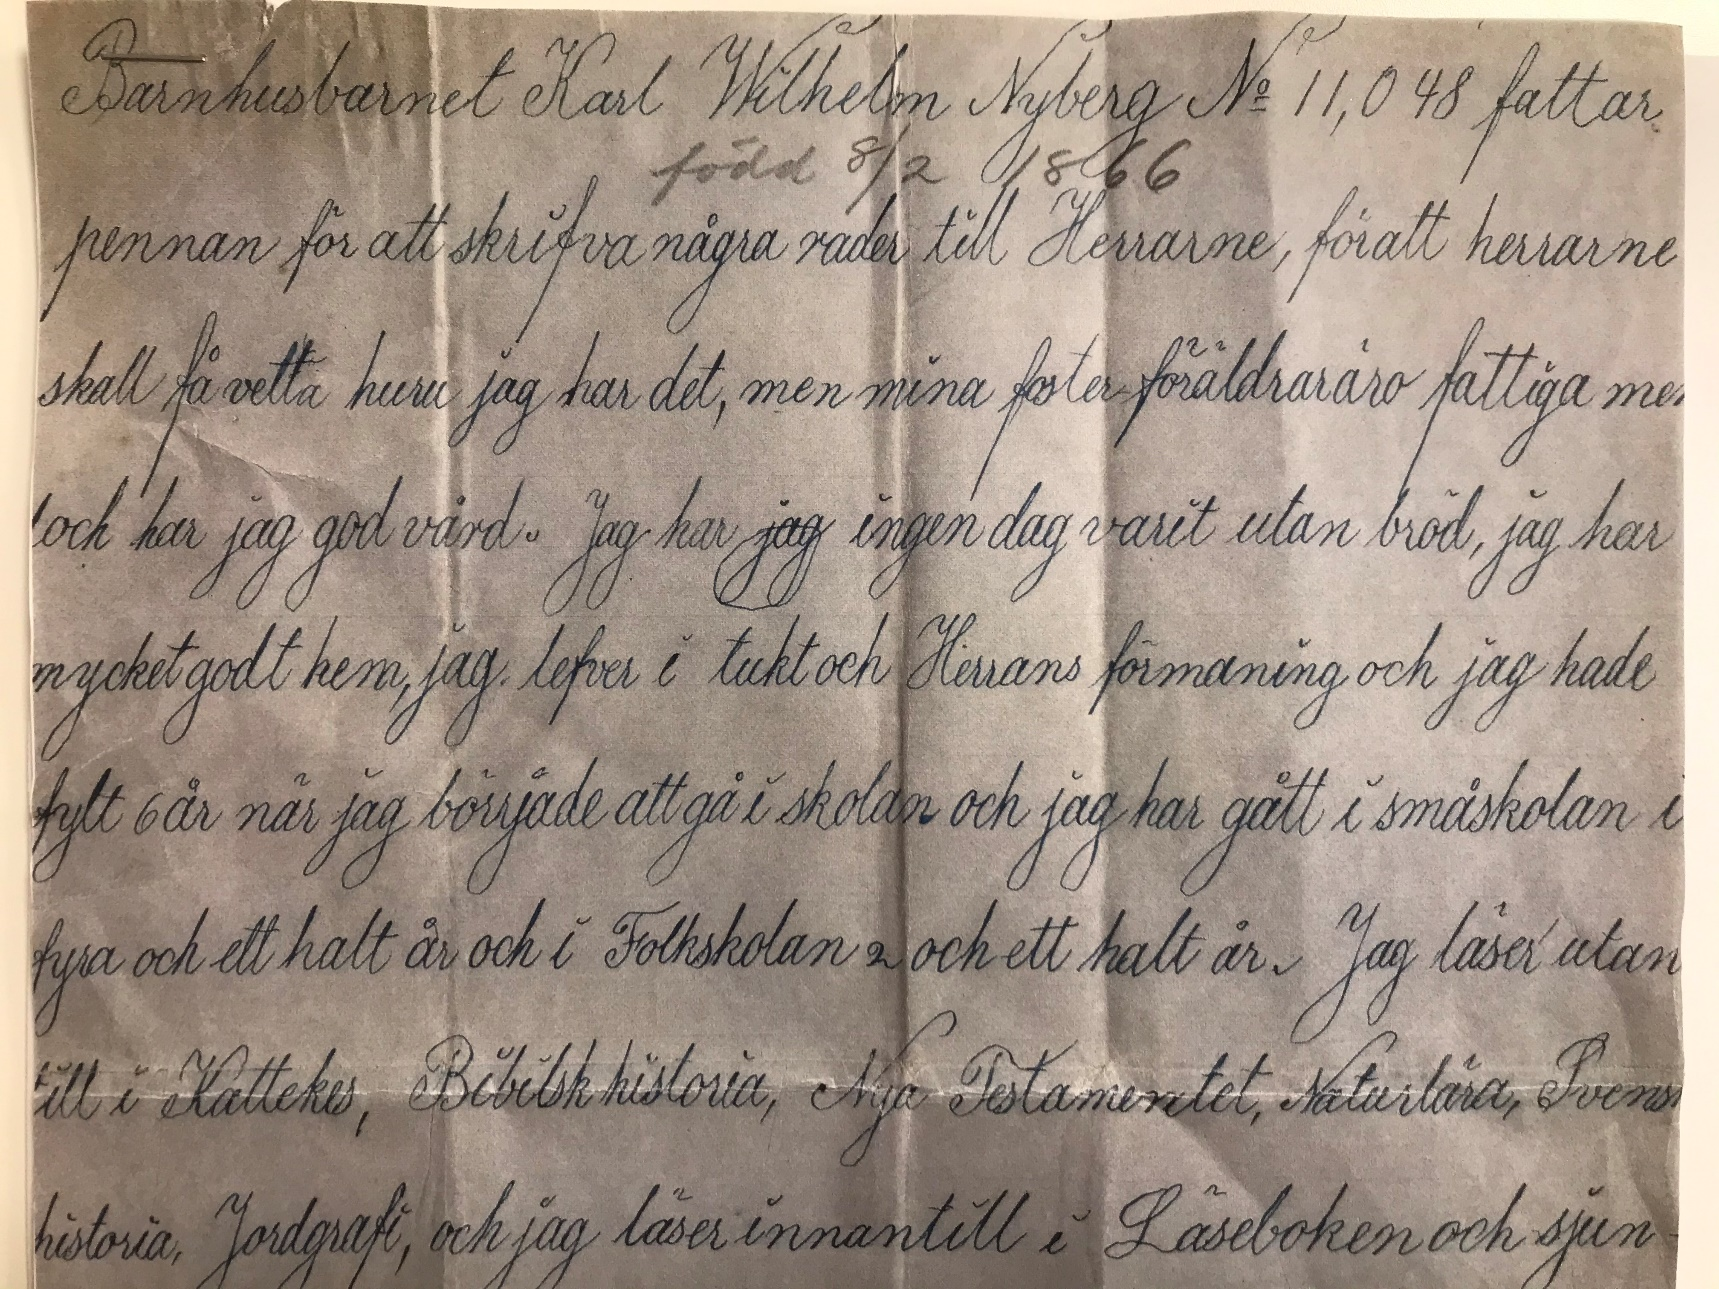 Barnhusbarnet Karl Wilhelm Nyberg No 11,048 fattar
född 8/2 1866
pennan för att skrifva några rader till Herrarne, föratt herrarne
skall få vetta huru jag har det, men mina foster föräldraräro fattiga men
och har jag god vård. Jag har jag ingen dag varit utan bröd, jag har
mycket godt hem, jag lefver i tukt och Herrans förmaning och jag hade
fylt 6 år när jag börrjade att gå i skolan och jag har gått i småskolan i
fyra och ett halt år och i Folkskolan 2 och ett halt år. Jag läser utan
till i Kattekes, Bibilsk historia, Nya Testamentet, Naturlära, Svensk
historia, Jordgrafi, och jag läser innantill i Läseboken och sjun-